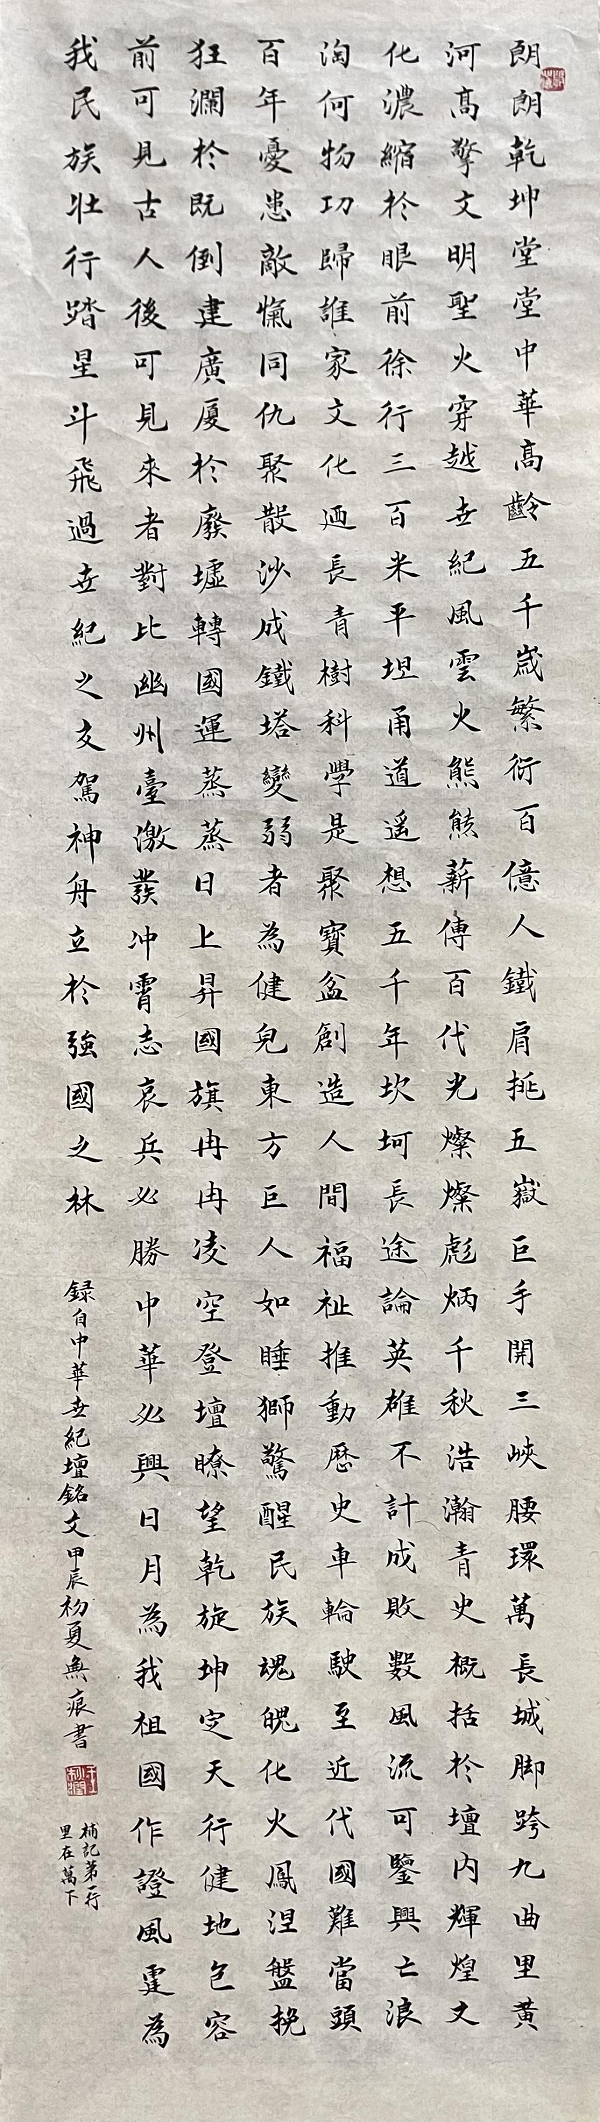 朗朗乾坤堂堂中華高齡五千歲繁衍百億人鐵肩挑五嶽巨手開三峽腰環萬長城脚跨九曲里黃
河高擎文明聖火穿越世紀風雲火熊熊薪傳百代光燦燦彪炳千秋浩瀚青史概括於壇內輝煌文
化濃縮於眼前徐行三百米平坦甬道遥想五千年坎坷長途論英雄不計成敗數風流可鑒興亡浪
淘何物功歸誰家文化迺長青樹科學是聚寶盆創造人間福祉推動歷史車輪駛至近代國難當頭
百年憂患敵愾同仇聚散沙成鐵塔變弱者為健兒東方巨人如睡獅驚醒民族魂魄化火鳳涅盤挽
狂瀾於既倒建廣厦於廢墟轉國運蒸蒸日上昇國旗冉冉凌空登壇瞭望乾旋坤定天行健地包容
前可見古人後可見來者對比幽州臺激發冲霄志哀兵必勝中華必興日月為我祖國作證風霆為
我民族壯行踏星斗飛過世紀之交駕神舟立於強國之林
録自中華世紀壇銘文甲辰初夏無痕書
補記第一行
里在萬下